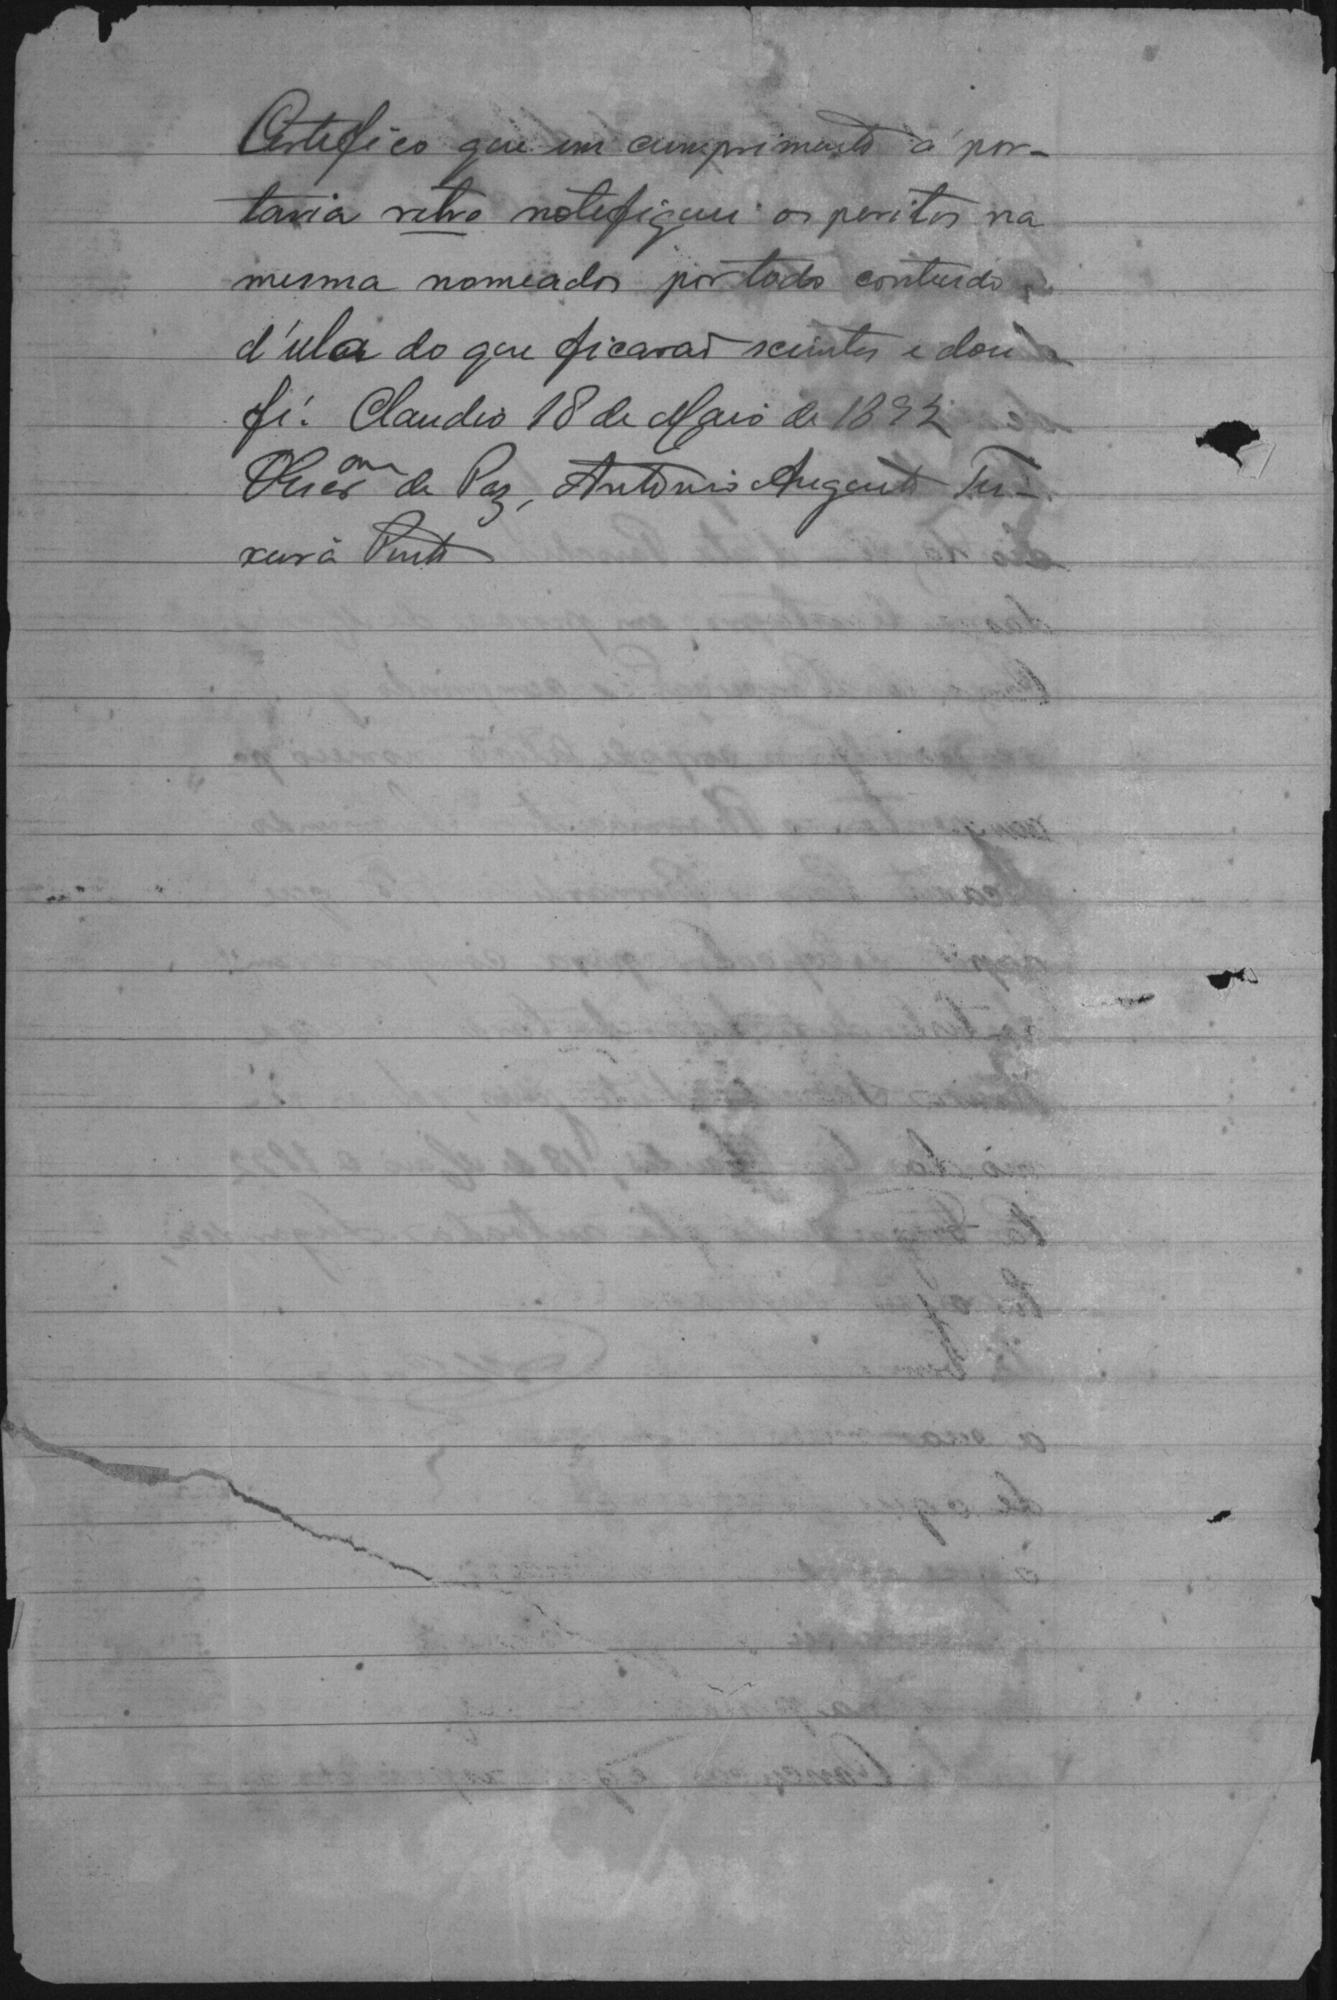 Certefico que em cumprimento á por-
taria retro notefiquei os peritos na
mesma nomeados por todo conteudo
d'ela do que ficarão scientes e dou
fé. Claudio 18 de Maio de 1892
O Escr.am de Paz, Antonio Augusto Tei-
xeira Pinto